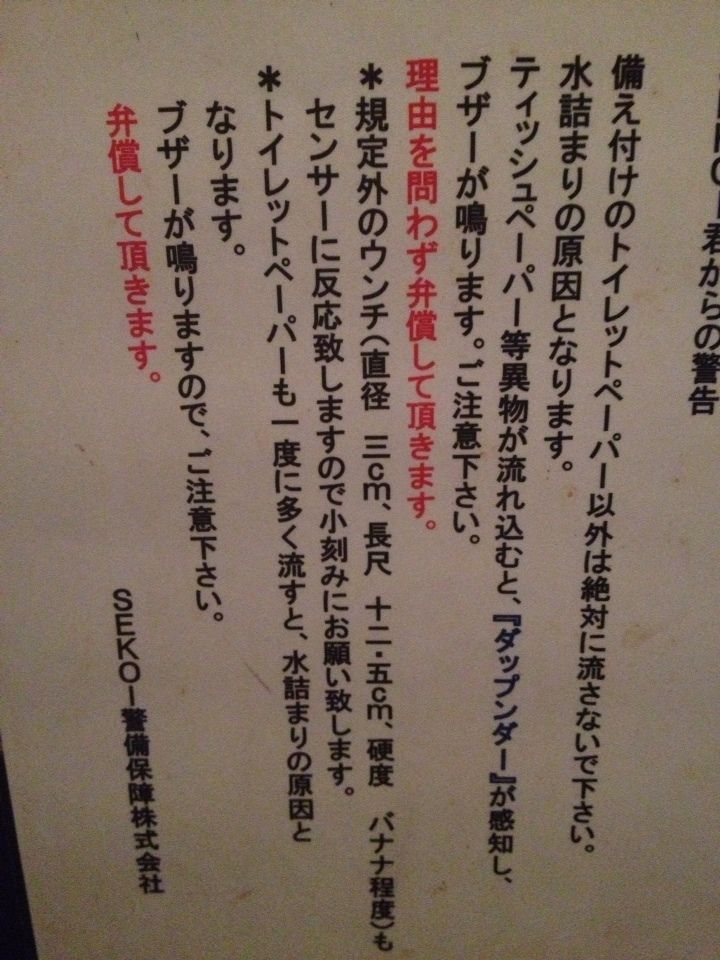 君からの警告
備え付けのトイレットペーパー以外は絶対に流さないで下さい。
水詰まりの原因となります。
ティッシュペーパー等異物が流れ込むと、『ダップンダー』が感知し、
ブザーが鳴ります。ご注意下さい。
理由を問わず弁償して頂きます。
＊規定外のウンチ（直径　三cm、長尺　十二・五cm、硬度　バナナ程度）も
センサーに反応致しますので小刻みにお願い致します。
＊トイレットペーパーも一度に多く流すと、水詰まりの原因と
なります。
ブザーが鳴りますので、ご注意下さい。
弁償して頂きます。
SEKOー警備保障株式会社